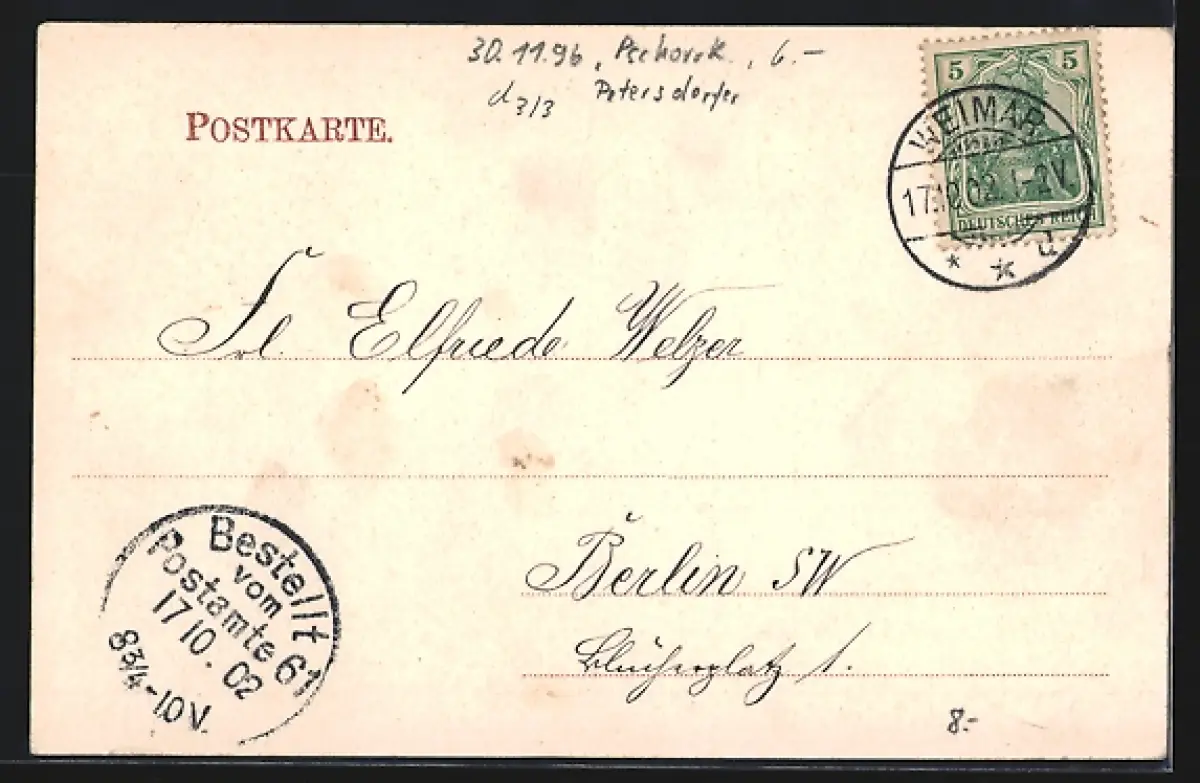 30.11.96, Pschorrk., 6.-
d3/3 Petersdorfer
POSTKARTE.
5 5
DEUTSCHES REICH
WEIMAR
17.10.02. 1-2V.
* * d
Frl. Elfriede Welzer
Berlin SW
Blücherplatz 1.
Bestellt
vom
Postamte 61
17 10. 02
8 3/4-10V.
8.-